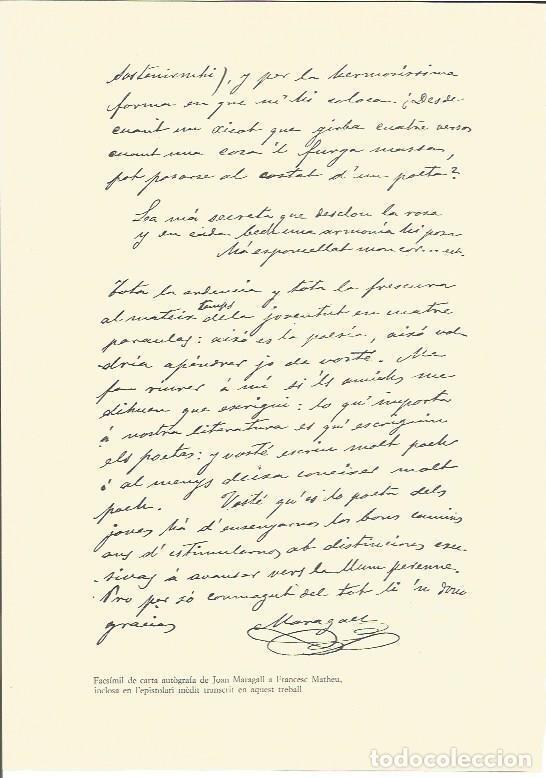 sosteniment), y per la hermosíssima
forma en que m' hi coloca. ¿Desde
cuant un xicot que girba cuatre versos
cuant una cosa 'l furga massa,
pot posarse al costat d' un poeta?
La má secreta que desclou la rosa
y en cada bech una armonía hi posa
M' ha esponcellat mon cor... etc.
Tota la ardencia y tota la frescura
al mateix temps de la joventut en cuatre
paraulas: aixó es la poesía, aixó vol-
dría apéndrer jo de vosté. Me
fa riurer á mí si 'ls amichs me
dihuen que escrigui: lo qu' importa
á nostra literatura es qu' escriguin
els poetas: y vosté escriu molt poch
ó al menys deixa coneixer molt
poch. Vosté qu' es lo poeta dels
joves há d' ensenyarnos los bons camins
en d' estimularnos ab distincions exce-
sivas á avansar vers la llum perenne.
Pro per só conmogut del tot li 'n dono
gracias Maragall
Facsímil de carta autògrafa de Joan Maragall a Francesc Matheu,
inclosa en l'epistolari inèdit transcrit en aquest treball
todocoleccion